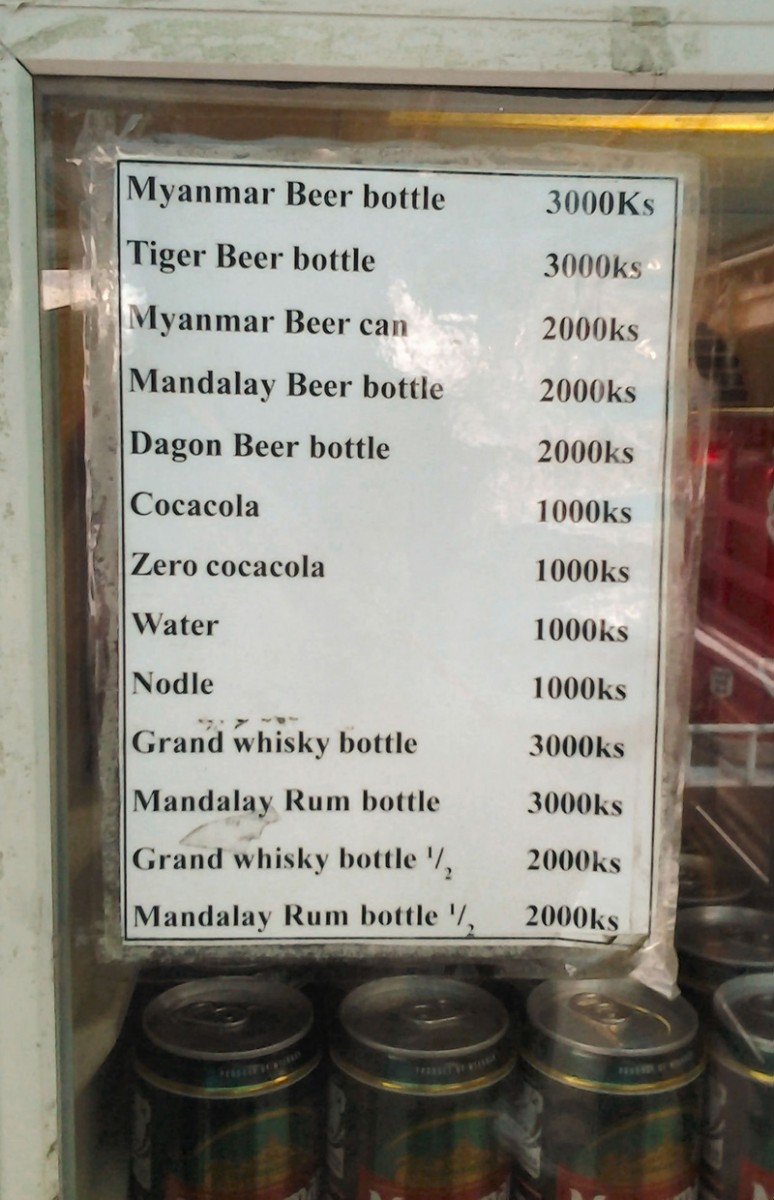 Myanmar Beer bottle 3000Ks
Tiger Beer bottle 3000ks
Myanmar Beer can 2000ks
Mandalay Beer bottle 2000ks
Dagon Beer bottle 2000ks
Cocacola 1000ks
Zero cocacola 1000ks
Water 1000ks
Nodle 1000ks
Grand whisky bottle 3000ks
Mandalay Rum bottle 3000ks
Grand whisky bottle 1/2 2000ks
Mandalay Rum bottle 1/2 2000ks